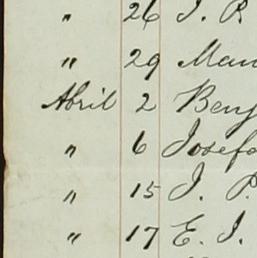 " 26 J. P.
" 29 Man
Abril 2 Benj
" 6 Josefa
" 15 J. P.
" 17 E. J.